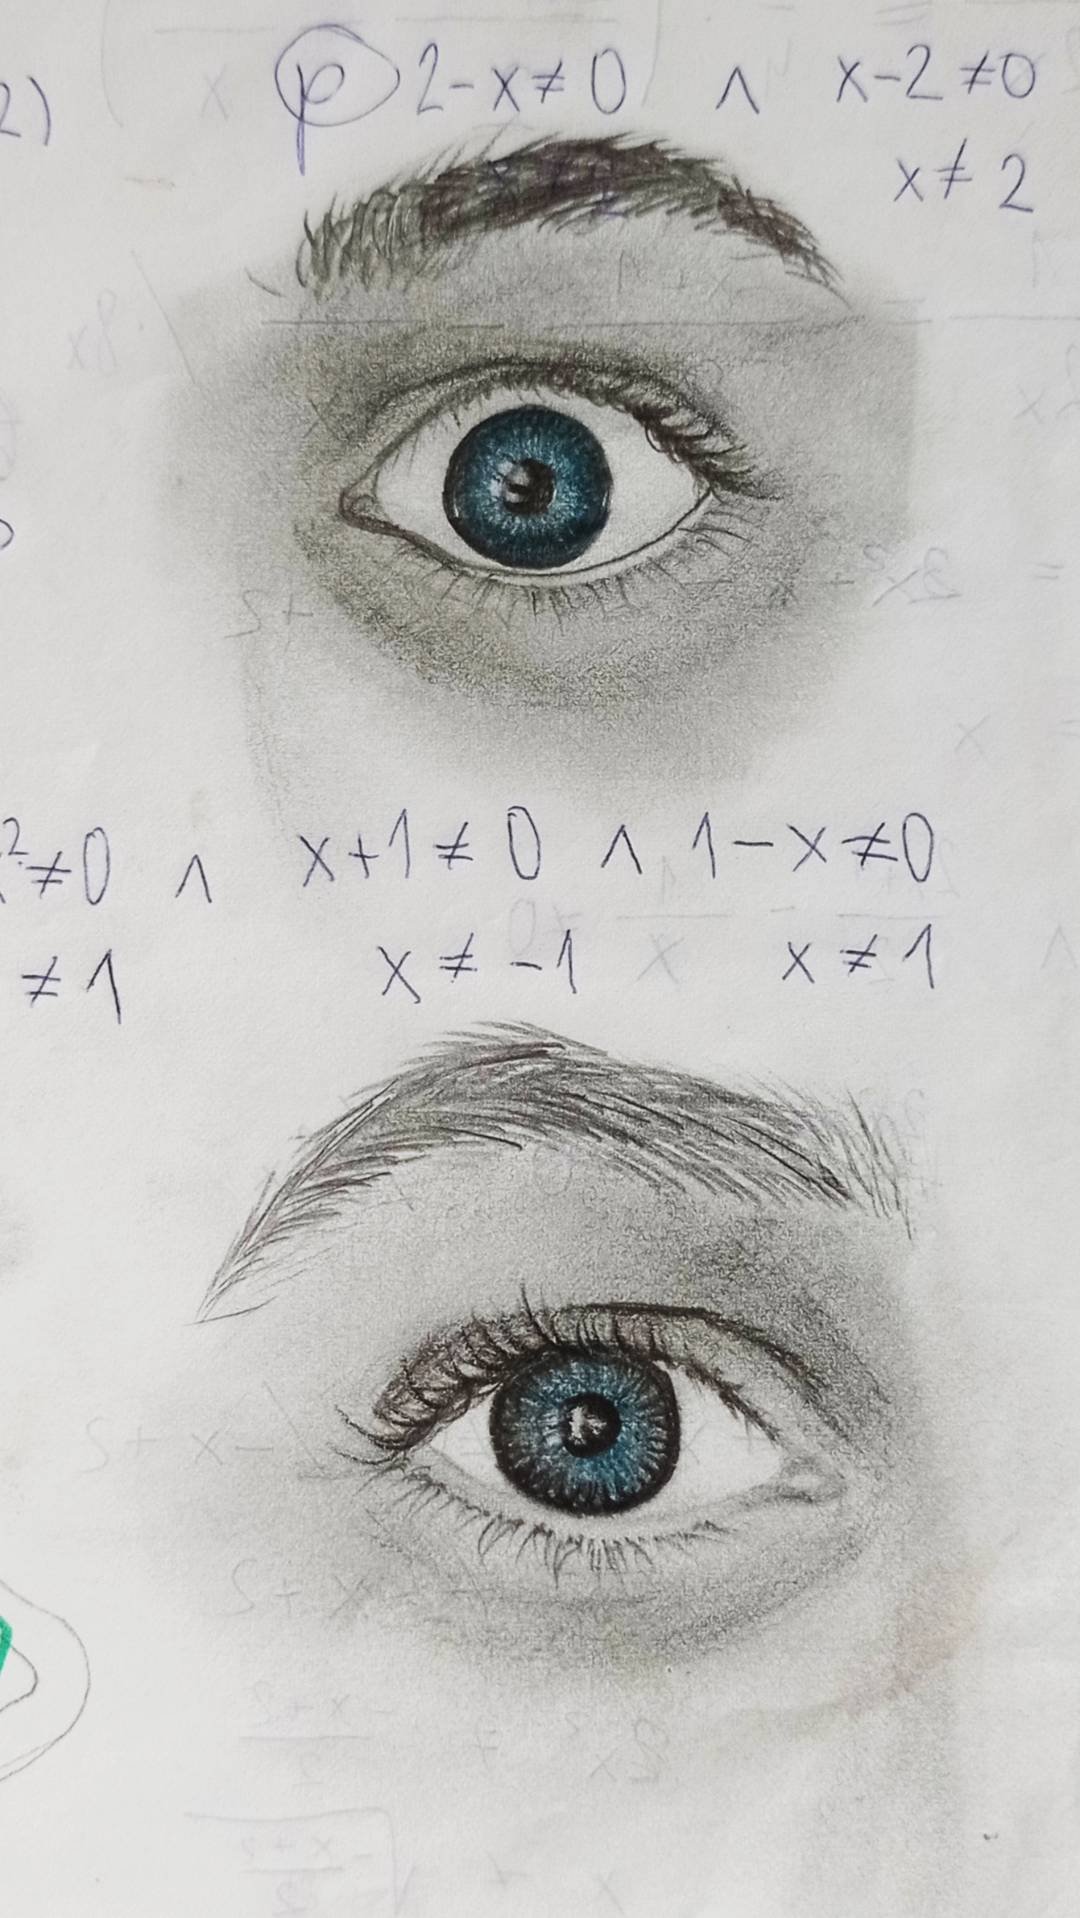 2) p 2-x≠0 ∧ x-2≠0
x≠2 x≠2
²≠0 ∧ x+1≠0 ∧ 1-x≠0
≠1 x≠-1 x≠1